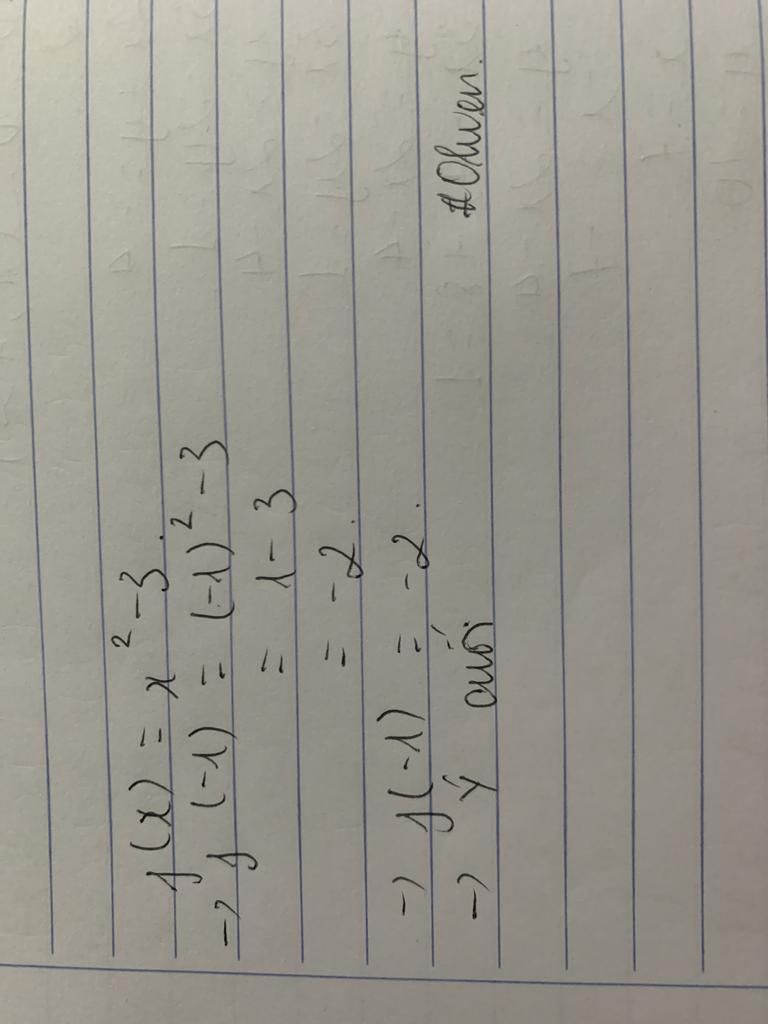 f(x) = x² - 3.
→ f(-1) = (-1)² - 3
= 1 - 3
= -2.
→ f(-1) = -2.
→ ý cuối
#Olwen.